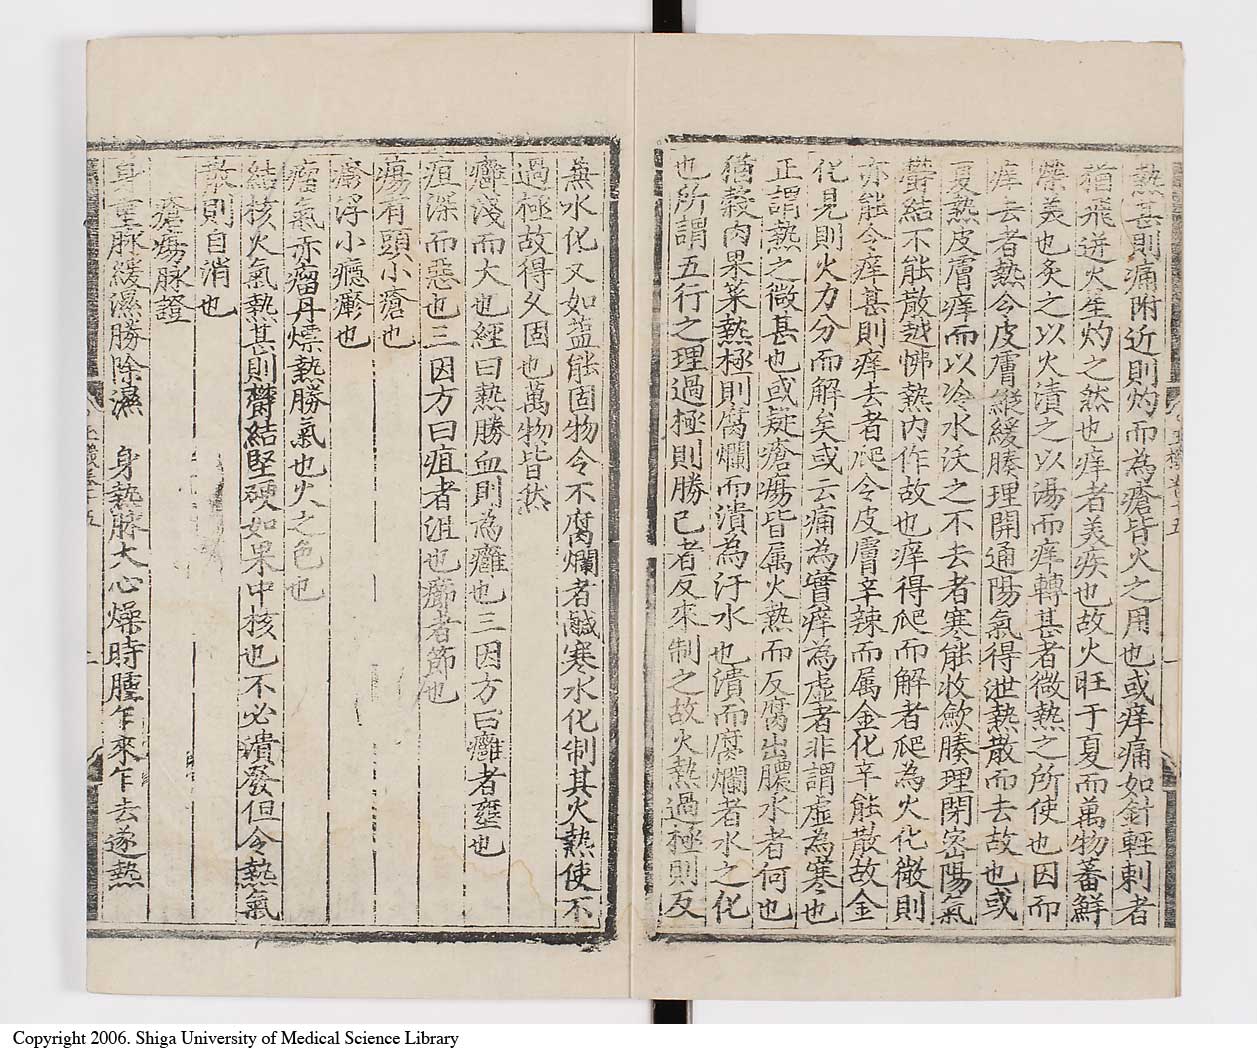 熱甚則痛附近則灼而為瘡皆火之用也或痒痛如針輕刺者
猶飛迸火星灼之然也痒者美疾也故火旺于夏而萬物蕃鮮
榮美也炙之以火漬之以湯而痒轉甚者微熱之所使也因而
痒去者熱令皮膚縱緩腠理開通陽氣得泄熱散而去故也或
夏熱皮膚痒而以冷水沃之不去者寒能收歛腠理閉密陽氣
欝結不能散越怫熱內作故也痒得爬而解者爬為火化微則
亦能令痒甚則痒去者爬令皮膚辛辣而属金化辛能散故金
化見則火力分而解矣或云痛為實痒為虛者非謂虛為寒也
正謂熱之微甚也或疑瘡瘍皆属火熱而反腐出膿水者何也
猶穀肉果菜熱極則腐爛而潰為汙水也潰而腐爛者水之化
也所謂五行之理過極則勝己者反來制之故火熱過極則反
兼水化又如蓝能固物令不腐爛者鹹寒水化制其火熱使不
過極故得久固也萬物皆然
癰淺而大也經曰熱勝血則為癰也三因方曰癰者壅也
疽深而惡也三因方曰疽者沮也癤者節也
瘍有頭小瘡也
疹浮小癮疹也
瘤氣赤瘤丹熛熱勝氣也火之色也
結核火氣熱甚則欝結堅硬如果中核也不必潰發但令熱氣
散則自消也
瘡瘍脉證
身重脉緩濕勝除濕　身熱脉大心燥時腫乍來乍去遂熱
Copyright 2006. Shiga University of Medical Science Library